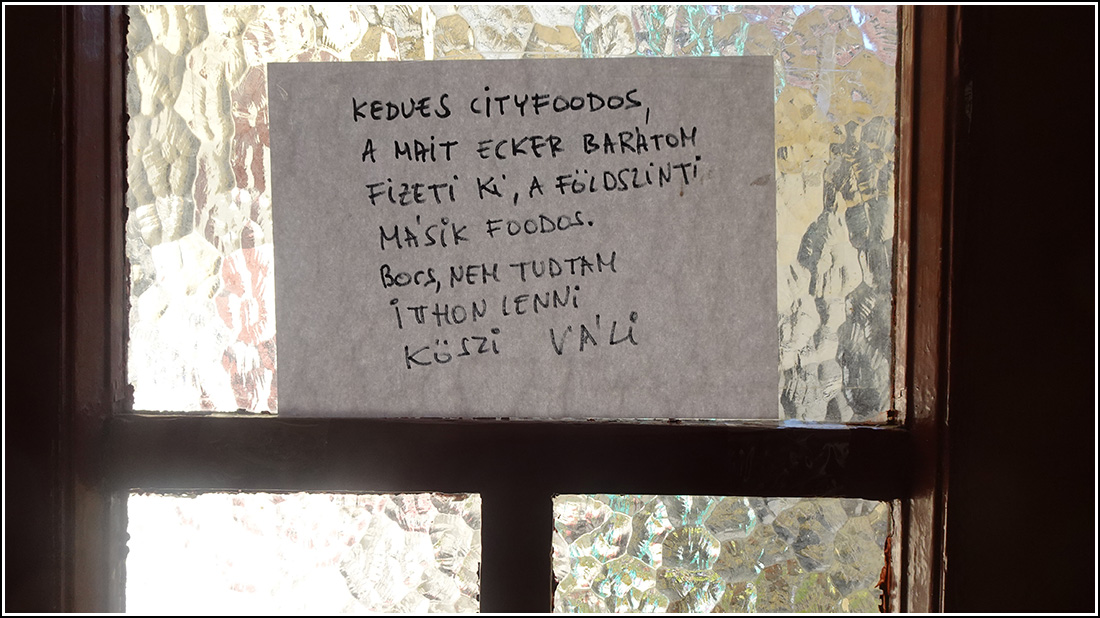 KEDVES CITYFOODOS,
A MAIT ECKER BARÁTOM
FIZETI KI, A FÖLDSZINTI
MÁSIK FOODOS.
BOCS, NEM TUDTAM
ITTHON LENNI
KÖSZI VÁLI